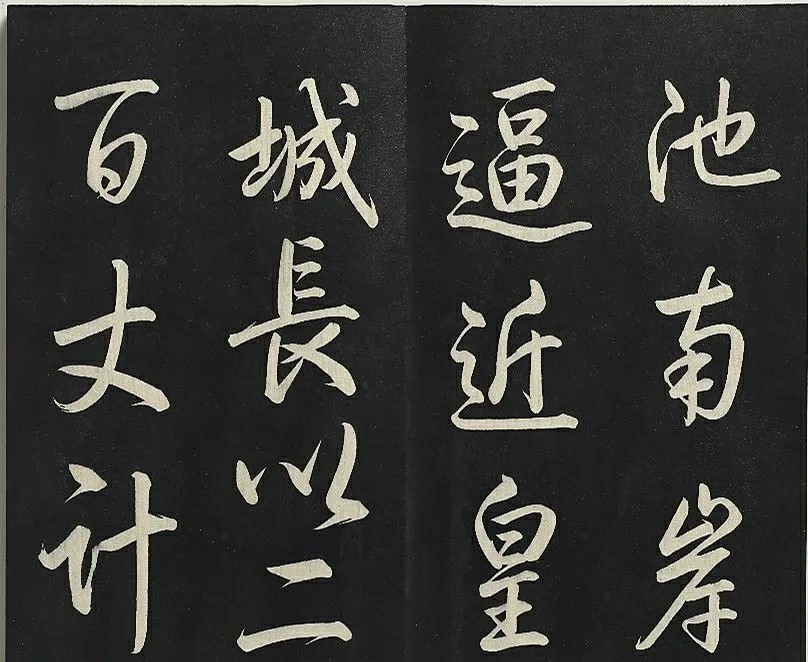 池南岸
逼近皇
城長以二
百丈计